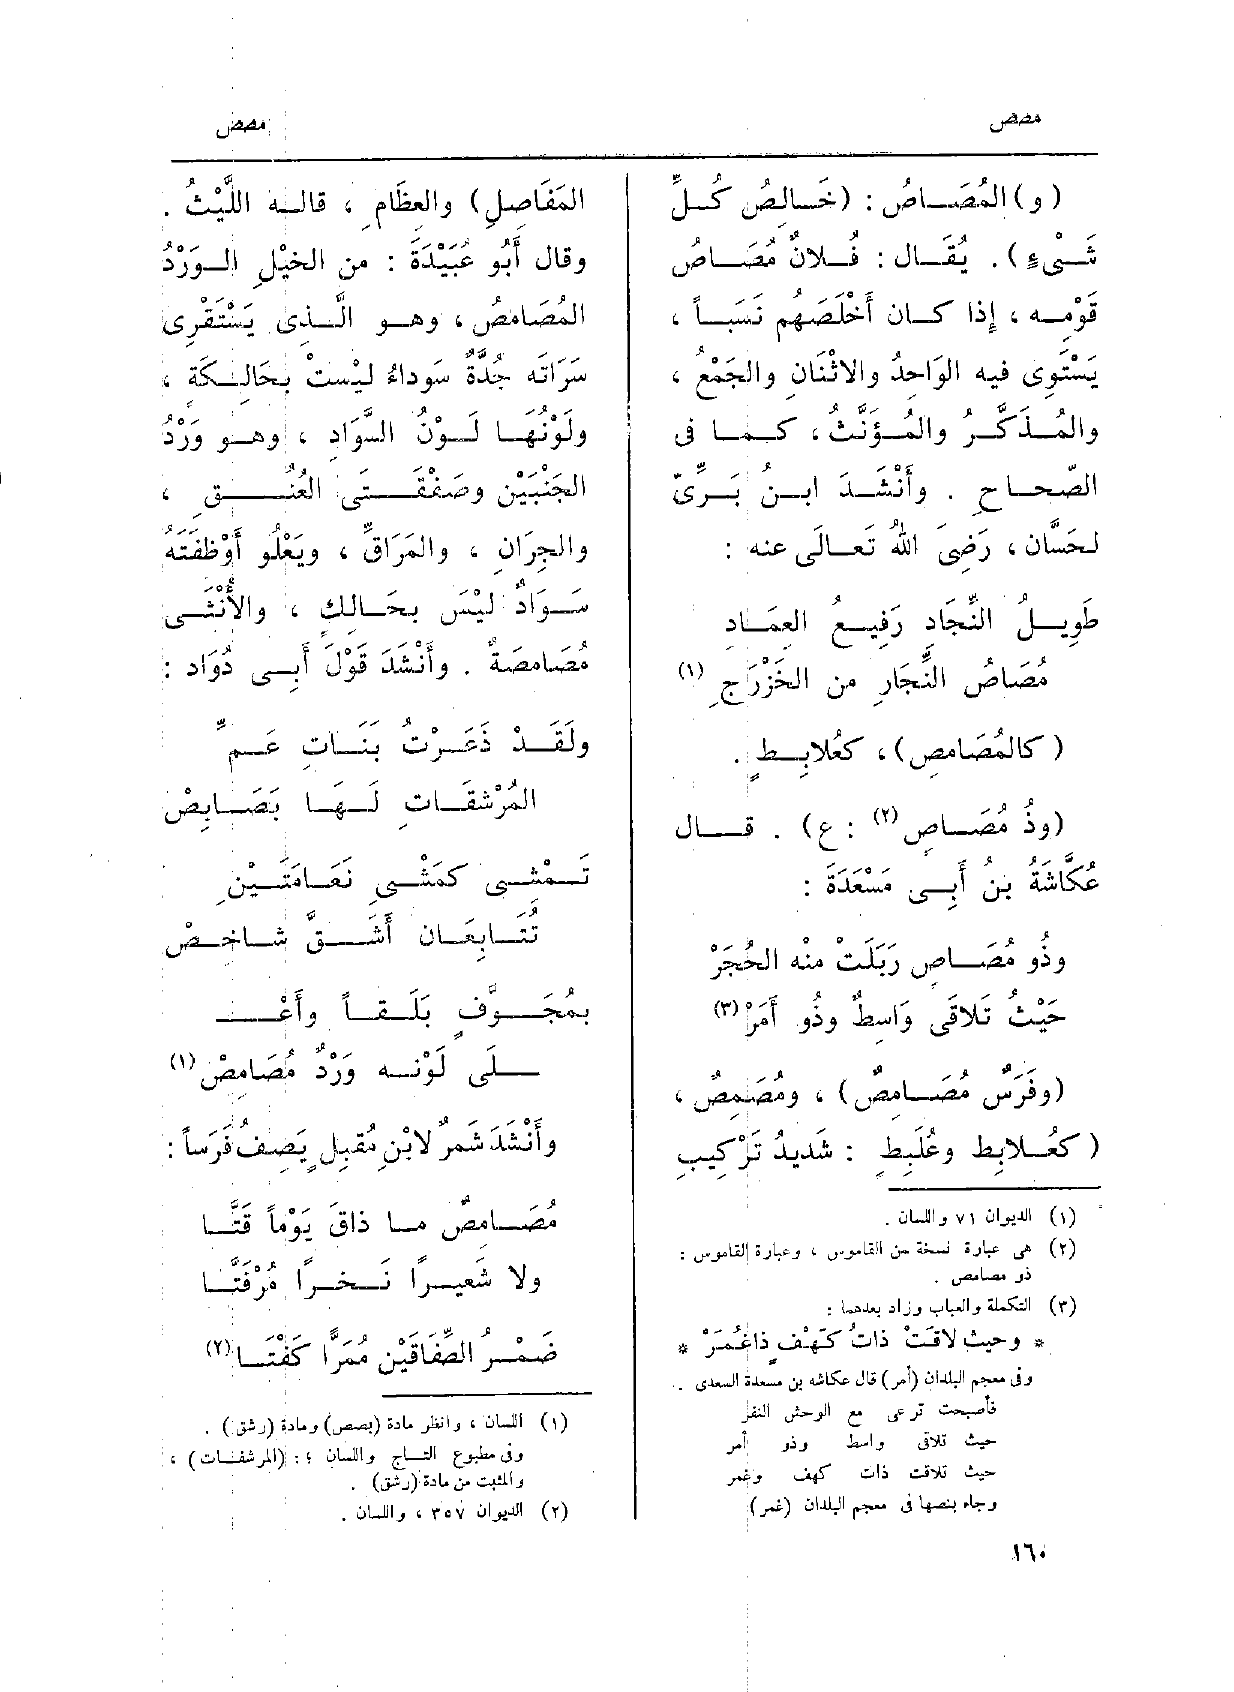 مصص
مصص
(و) المُصَاصُ : (خَالِصُ كُلِّ
شَىْءٍ) . يُقَال : فُلانٌ مُصَاصُ
قَوْمِه ، إِذا كان أَخْلَصَهُم نَسَباً ،
يَسْتَوِى فيه الوَاحِدُ والاثْنَانِ والجَمْعُ ،
والمُذَكَّرُ والمُؤَنَّثُ ، كما فى
الصّحاحِ . وأَنْشَدَ ابنُ بَرِّىّ
لحَسَّان ، رَضِىَ اللهُ تَعَالَى عنه :
طَوِيلُ النِّجَادِ رَفِيعُ العِمَادِ
مُصَاصُ النِّجَارِ من الخَزْرَجِ (١)
(كالمُصَامِصِ) ، كعُلابِطٍ .
(وذُ مُصَاصٍ (٢) : ع) . قال
عُكَّاشَةُ بن أَبِى مَسْعَدَةَ :
وذُو مُصَاصٍ رَبَلَتْ منه الحُجَرْ
حَيْثُ تَلاقَى وَاسِطٌ وذُو أَمَرْ (٣)
(وفَرَسٌ مُصَامِصٌ) ، ومُصَمِصٌ ،
(كعُلابِطٍ وعُلَبِطٍ : شَدِيدُ تَرْكِيبِ
(١) الديوان ٧١ واللسان .
(٢) هى عبارة نسخة من القاموس ، وعبارة القاموس :
ذو مصامص .
(٣) التكملة والعباب وزاد بعدهما :
* وحيث لاقَتْ ذاتُ كَهْفٍ ذاغُمَرْ *
وفى معجم البلدان (أمر) قال عكاشه بن مسعدة السعدى .
فأصبحت ترعى مع الوحش النفر
حيث تلاقى واسط وذو أمر
حيث تلاقت ذات كهف وغمر
وجاء بنصها فى معجم البلدان (غمر)
المَفَاصِلِ) والعِظَامِ ، قاله اللَّيْثُ .
وقال أَبُو عُبَيْدَةَ : من الخَيْلِ الوَرْدُ
المُصَامِصُ ، وهو الَّذِى يَسْتَقْرِى
سَرَاتَه جُدَّةٌ سَوداءُ ليْستْ بحَالِكَةٍ ،
ولَوْنُها لَوْنُ السَّوَادِ ، وهو وَرْدُ
الجَنْبَيْنِ وصَفْقَتَىِ العُنُقِ ،
والجِرَانِ ، والمَرَاقِّ ، ويَعْلُو أَوْظِفَتَهُ
سَوَادٌ ليْسَ بحَالِك ، والأُنْثَى
مُصَامِصَةٌ . وأَنْشَدَ قَوْلَ أَبِى دُوَاد :
ولَقَدْ ذَعَرْتُ بَنَاتِ عَمِّ
المُرْشِقَاتِ لَهَا بَصَابِصْ
تَمْشِى كمَشْىِ نَعَامَتَيْنِ
تُتَابِعَانِ أَشَقَّ شاخِصْ
بمُجَوَّفٍ بَلَقاً وأَعْـ
ـلَى لَوْنِه وَرْدٌ مُصَامِصْ (١)
وأَنْشَدَ شَمِرٌ لابْنِ مُقْبِلٍ يَصِفُ فَرَساً :
مُصَامِصٌ ما ذاقَ يَوْماً قَتَّا
ولا شَعِيرًا نَخِرًا مُرْفَتَّا
ضَمْرُ الصِّفَاقَيْنِ مُمَرًّا كَفْتَا (٢)
(١) اللسان ، وانظر مادة (بصص) ومادة (رشق) .
وفى مطبوع التاج واللسان ؛ : (المرشفات) ،
والمثبت من مادة (رشق) .
(٢) الديوان ٣٥٧ ، واللسان .
١٦٠